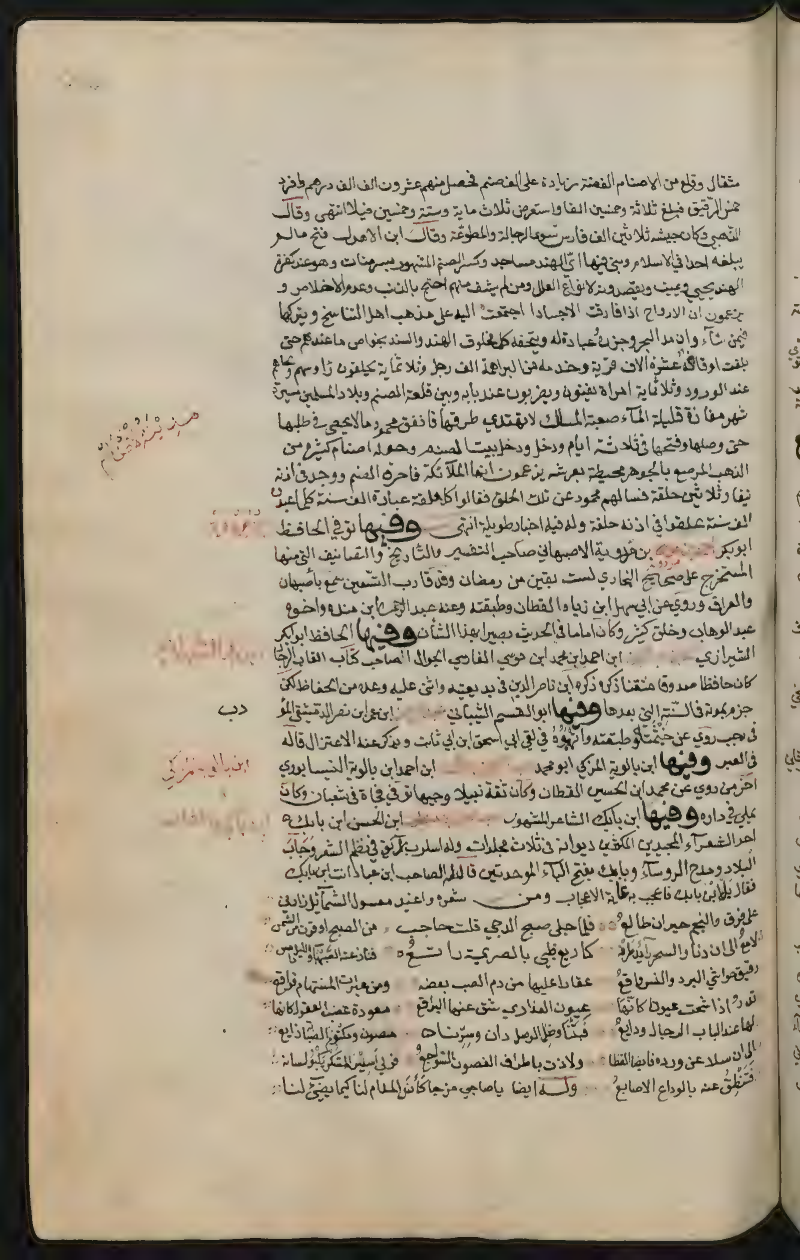 مثقال وقلع من الاصنام الفضة زيادة على الف صنم فحصل منهم عشرون الف الف درهم وافرد
خمس الرقيق فبلغ ثلاثة وخمسين الفا واستعرض ثلاث ماية وستة وخمسين فيلا انتهى وقال
الذهبي وكان جيشه ثلاثين الف فارس سوى الرجالة والمطوعة وقال ابن الاهدل فتح مالم
يبلغه احد في الاسلام وبنى فيها اي الهند مساجد وكسر الصنم المشهور بسومنات وهو عند كفرة
الهند يحيي ويميت ويقصدونه لانواع العلل ومن لم يشف منهم احتج بالذنب وعدم الاخلاص و
يزعمون ان الارواح اذا فارقت الاجساد اجتمعت اليه على مذهب اهل التناسخ ويتركها
فيمن شاء وان مد البحر وجزره عبادة له ويتحفه كل ملوك الهند والسند بخواص ما عندهم حتى
بلغت اوقافه عشرة الاف قرية وخدمه من البراهمة الف رجل وثلاثماية يحلقون رؤوسهم ولحاهم
عند الورود وثلاثماية امراة يغنون ويضربون عند بابه وبين قلعة الصنم وبلاد المسلمين مسيرة
شهر مفازة قليلة الماء صعبة المسالك لا يهتدي طرقها فانفق محمود مالا يحصى في طلبها
حتى وصلها وفتحها في ثلاثة ايام ودخل ودخل بيت الصنم وحوله اصنام كثيرة من
الذهب المرصع بالجوهر محيطة بعرشه يزعمون انها الملائكة فاحرق الصنم ووجد في اذنه
نيفا وثلاثين حلقة فسالهم محمود عن تلك الحلق فقالوا كل حلقة عبادة الف سنة كلما عبدوا
الف سنة علقوا في اذنه حلقة وله فيه اخبار طويلة انتهى وفيها توفي الحافظ
ابو بكر بن مردوية الاصبهاني صاحب التفسير والتاريخ والتصانيف التي منها
المستخرج على صحيح البخاري لست بقين من رمضان وقد قارب التسعين سمع باصبهان
والعراق وروى عن ابي سهل ابن زياد القطان وطبقته وعنه عبد الرحمن ابن منده واخوه
عبد الوهاب وخلق كثير وكان اماما في الحديث بصيرا بهذا الشان وفيها الحافظ ابو بكر
الشيرازي ابن احمد ابن محمد ابن موسى الفارسي الجوال الصاحب كتاب القاب الرجال
كان حافظا صدوقا متقنا ذكره ابن ناصر الدين في بديعيته واثنى عليه وعده من الحفاظ لكن
جزم بموته في السنة التي بعدها وفيها ابو القسم الشيباني ابن عمر ابن نصر الدمشقي المؤ
دب
في رجب روى عن خيثمة وطبقته واتهموه في لقي ابي اسحق ابن ابي ثابت ويذكر عنه الاعتزال قاله
في العبر وفيها ابن بالوية المزكي ابو محمد ابن احمد ابن بالوية النيسابوري
ابن بالويه مزكي
اخر من روى عن محمد ابن الحسين القطان وكان ثقة نبيلا وجيها توفي فجاة في شعبان وكان
يملي في داره وفيها ابن بابك الشاعر المشهور ابن الحسن ابن بابك
احد الشعراء المجيدين المكثرين ديوانه في ثلاث مجلدات وله اسلوب رائق في نظم الشعر وجاب
البلاد ومدح الروساء وبابك بفتح الباء الموحدتين قال له الصاحب ابن عباد انت ابن بابك
فقال بل ابن بابك فاعجب به غاية الاعجاب ومن شعره واغيد معسول الشمائل زارني
على فرق والنجم حيران طالع فلما جلى صبح الدجى قلت حاجب من الصبح او قرن من الشمس
لامع الى ان دنا والسحر رائد طرفه كما ريع ظبي بالصريمة راتع فنازعته الصهباء والليل دامس
رقيق حواشي البرد والنسر واقع عقار عليها من دم الصب بعضه ومن عبرات المستهام فواقع
تدر اذا شجت عيونا كانها عيون العذارى شق عنها البراقع معودة غصب العقول كانما
لها عند الباب الرجال ودايع فبتنا وظل الوصل دان وسرنا مصون ومكتوم الصبابة ذايع
الى ان سلا عن ورده فارط القطا ولاذت باطراف الغصون السواجع فولى اسير السكر يكبو لسانه
فتنطق عنه بالوداع الاصابع وله ايضا يا صاحبي مزجا كاس المدام لنا كيما يضيء لنا